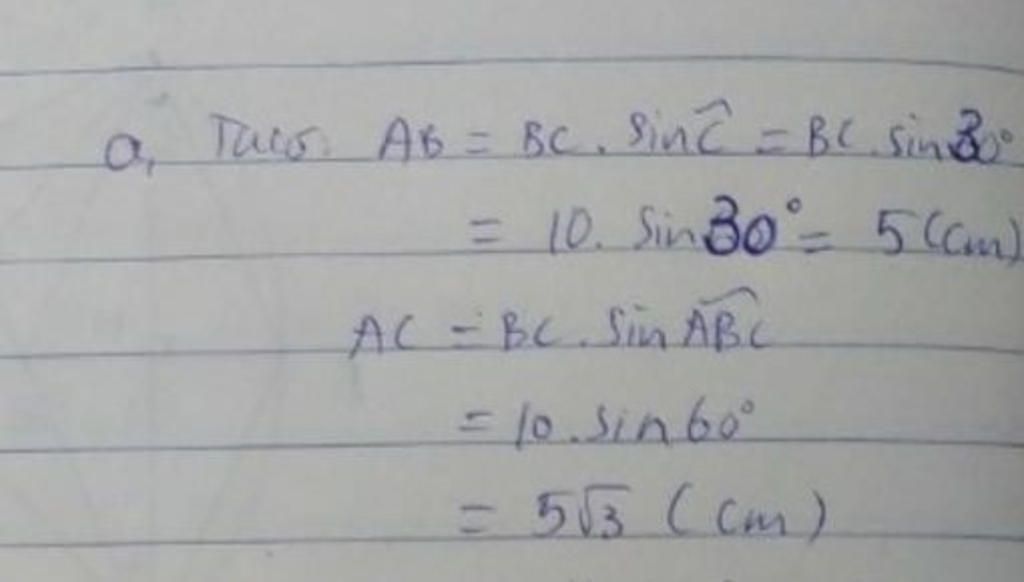 a, Ta có: AB = BC . sin Ĉ = BC . sin 30°
= 10 . sin 30° = 5 (cm)
AC = BC . sin \widehat{ABC}
= 10 . sin 60°
= 5√3 (cm)